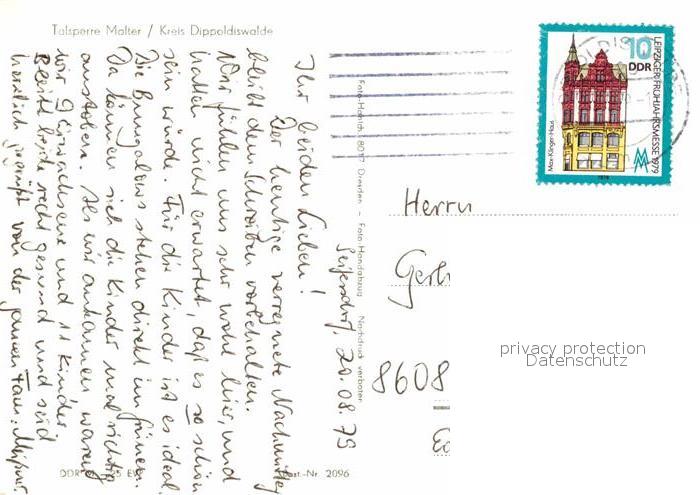 Talsperre Malter / Kreis Dippoldiswalde
Seifersdorf, 20.08.79
Ihr beiden Lieben!
Der heutige verregnete Nachmittag
bleibt dem Schreiben vorbehalten.
Wir fühlen uns sehr wohl hier, und
hatten nicht erwartet, daß es so schön
sein würde. Für die Kinder ist es ideal.
Die Bungalows stehen direkt im Grünen.
Da können sich die Kinder mal richtig
austoben. Als wir ankamen waren
wir 9 Erwachsene und 11 Kinder.
Bleibt beide recht gesund und seid
herzlich gegrüßt von der ganzen Fam.
Foto 8017 Dresden – Foto-Handabzug Nachdruck verboten
DDR
Best.-Nr. 2096
10
DDR
LEIPZIGER FRÜHJAHRSMESSE 1979
Max-Klinger-Haus
1979
Herrn
8608
privacy protection
Datenschutz